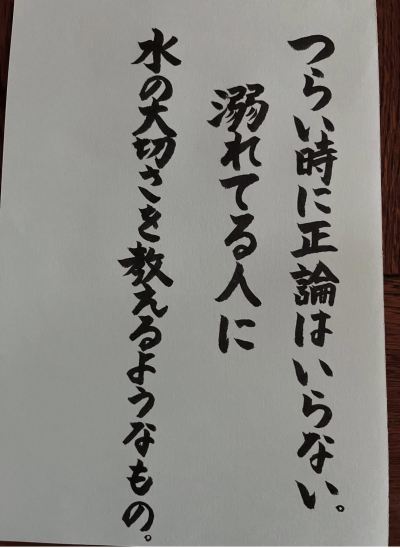 つらい時に正論はいらない。
溺れてる人に
水の大切さを教えるようなもの。